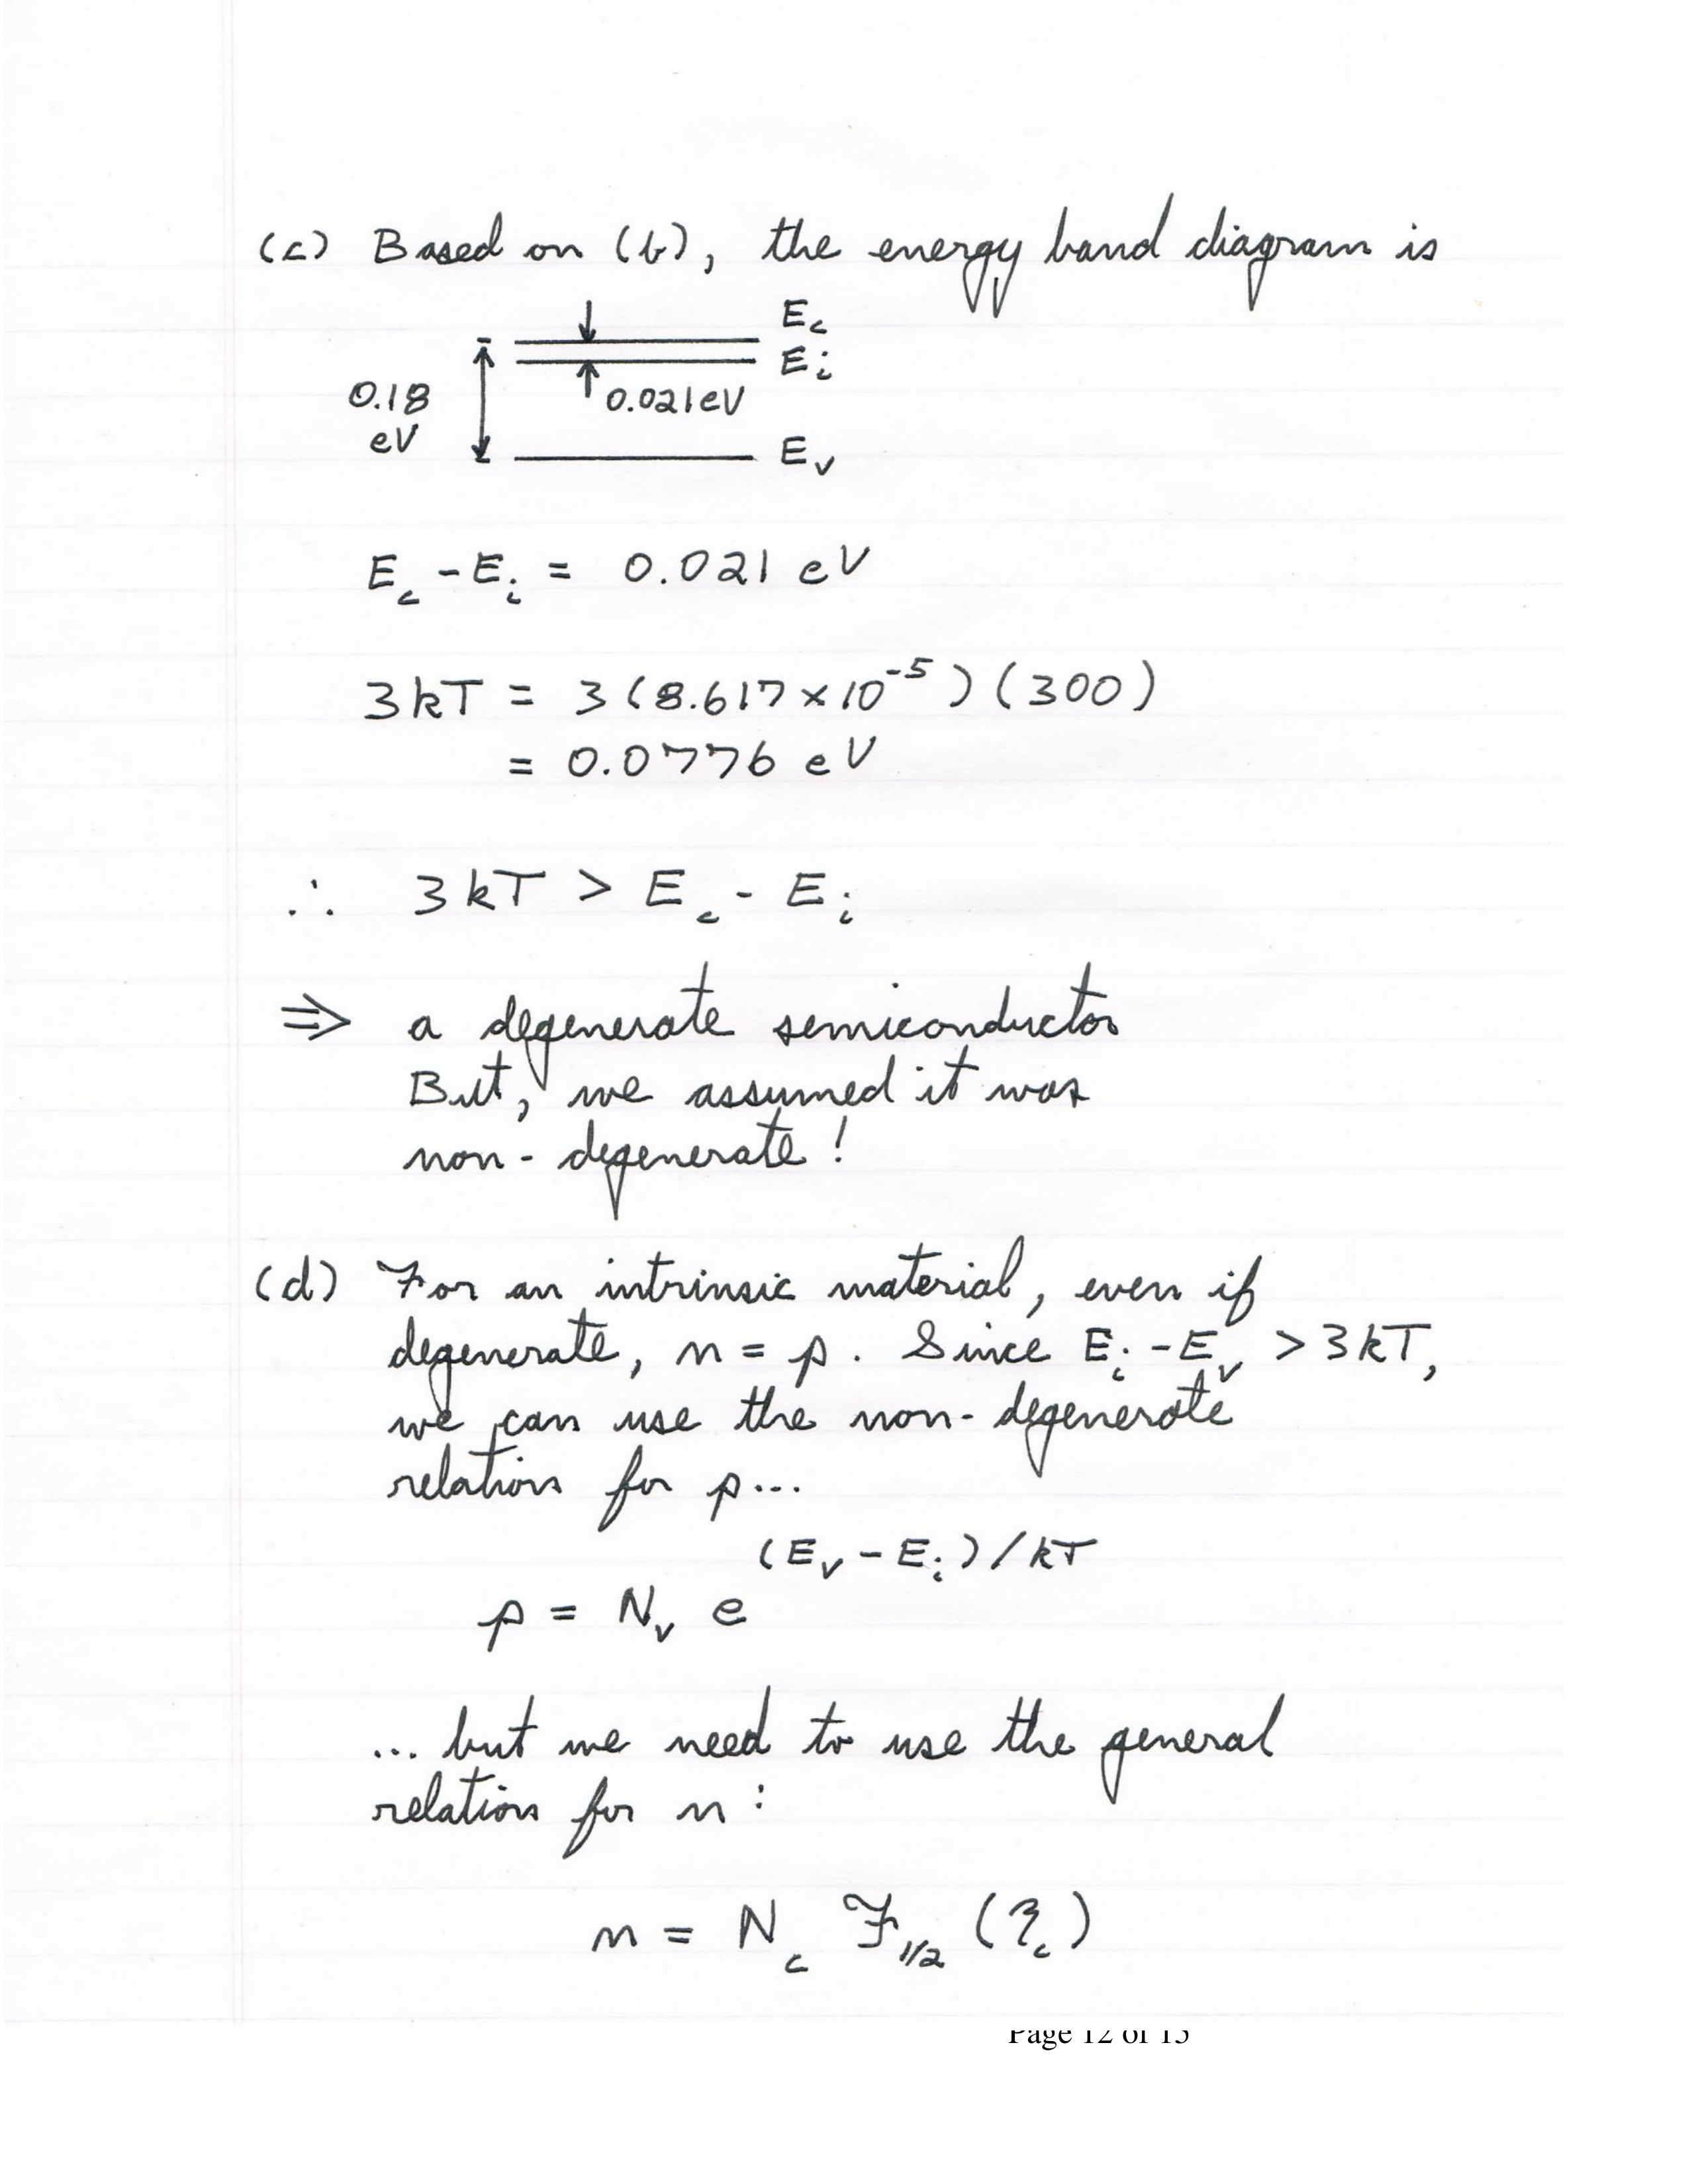 (c) Based on (b), the energy band diagram is
E_c
E_i
0.18 eV
0.021eV
E_v
E_c - E_i = 0.021 eV
3kT = 3(8.617×10^-5)(300)
= 0.0776 eV
∴ 3kT > E_c - E_i
⇒ a degenerate semiconductor
But, we assumed it was
non-degenerate!
(d) For an intrinsic material, even if
degenerate, n = p. Since E_i - E_v > 3kT,
we can use the non-degenerate
relation for p...
p = N_v e^(E_v - E_i)/kT
... but we need to use the general
relation for n:
n = N_c ℱ_1/2 (η_c)
Page 12 of 13